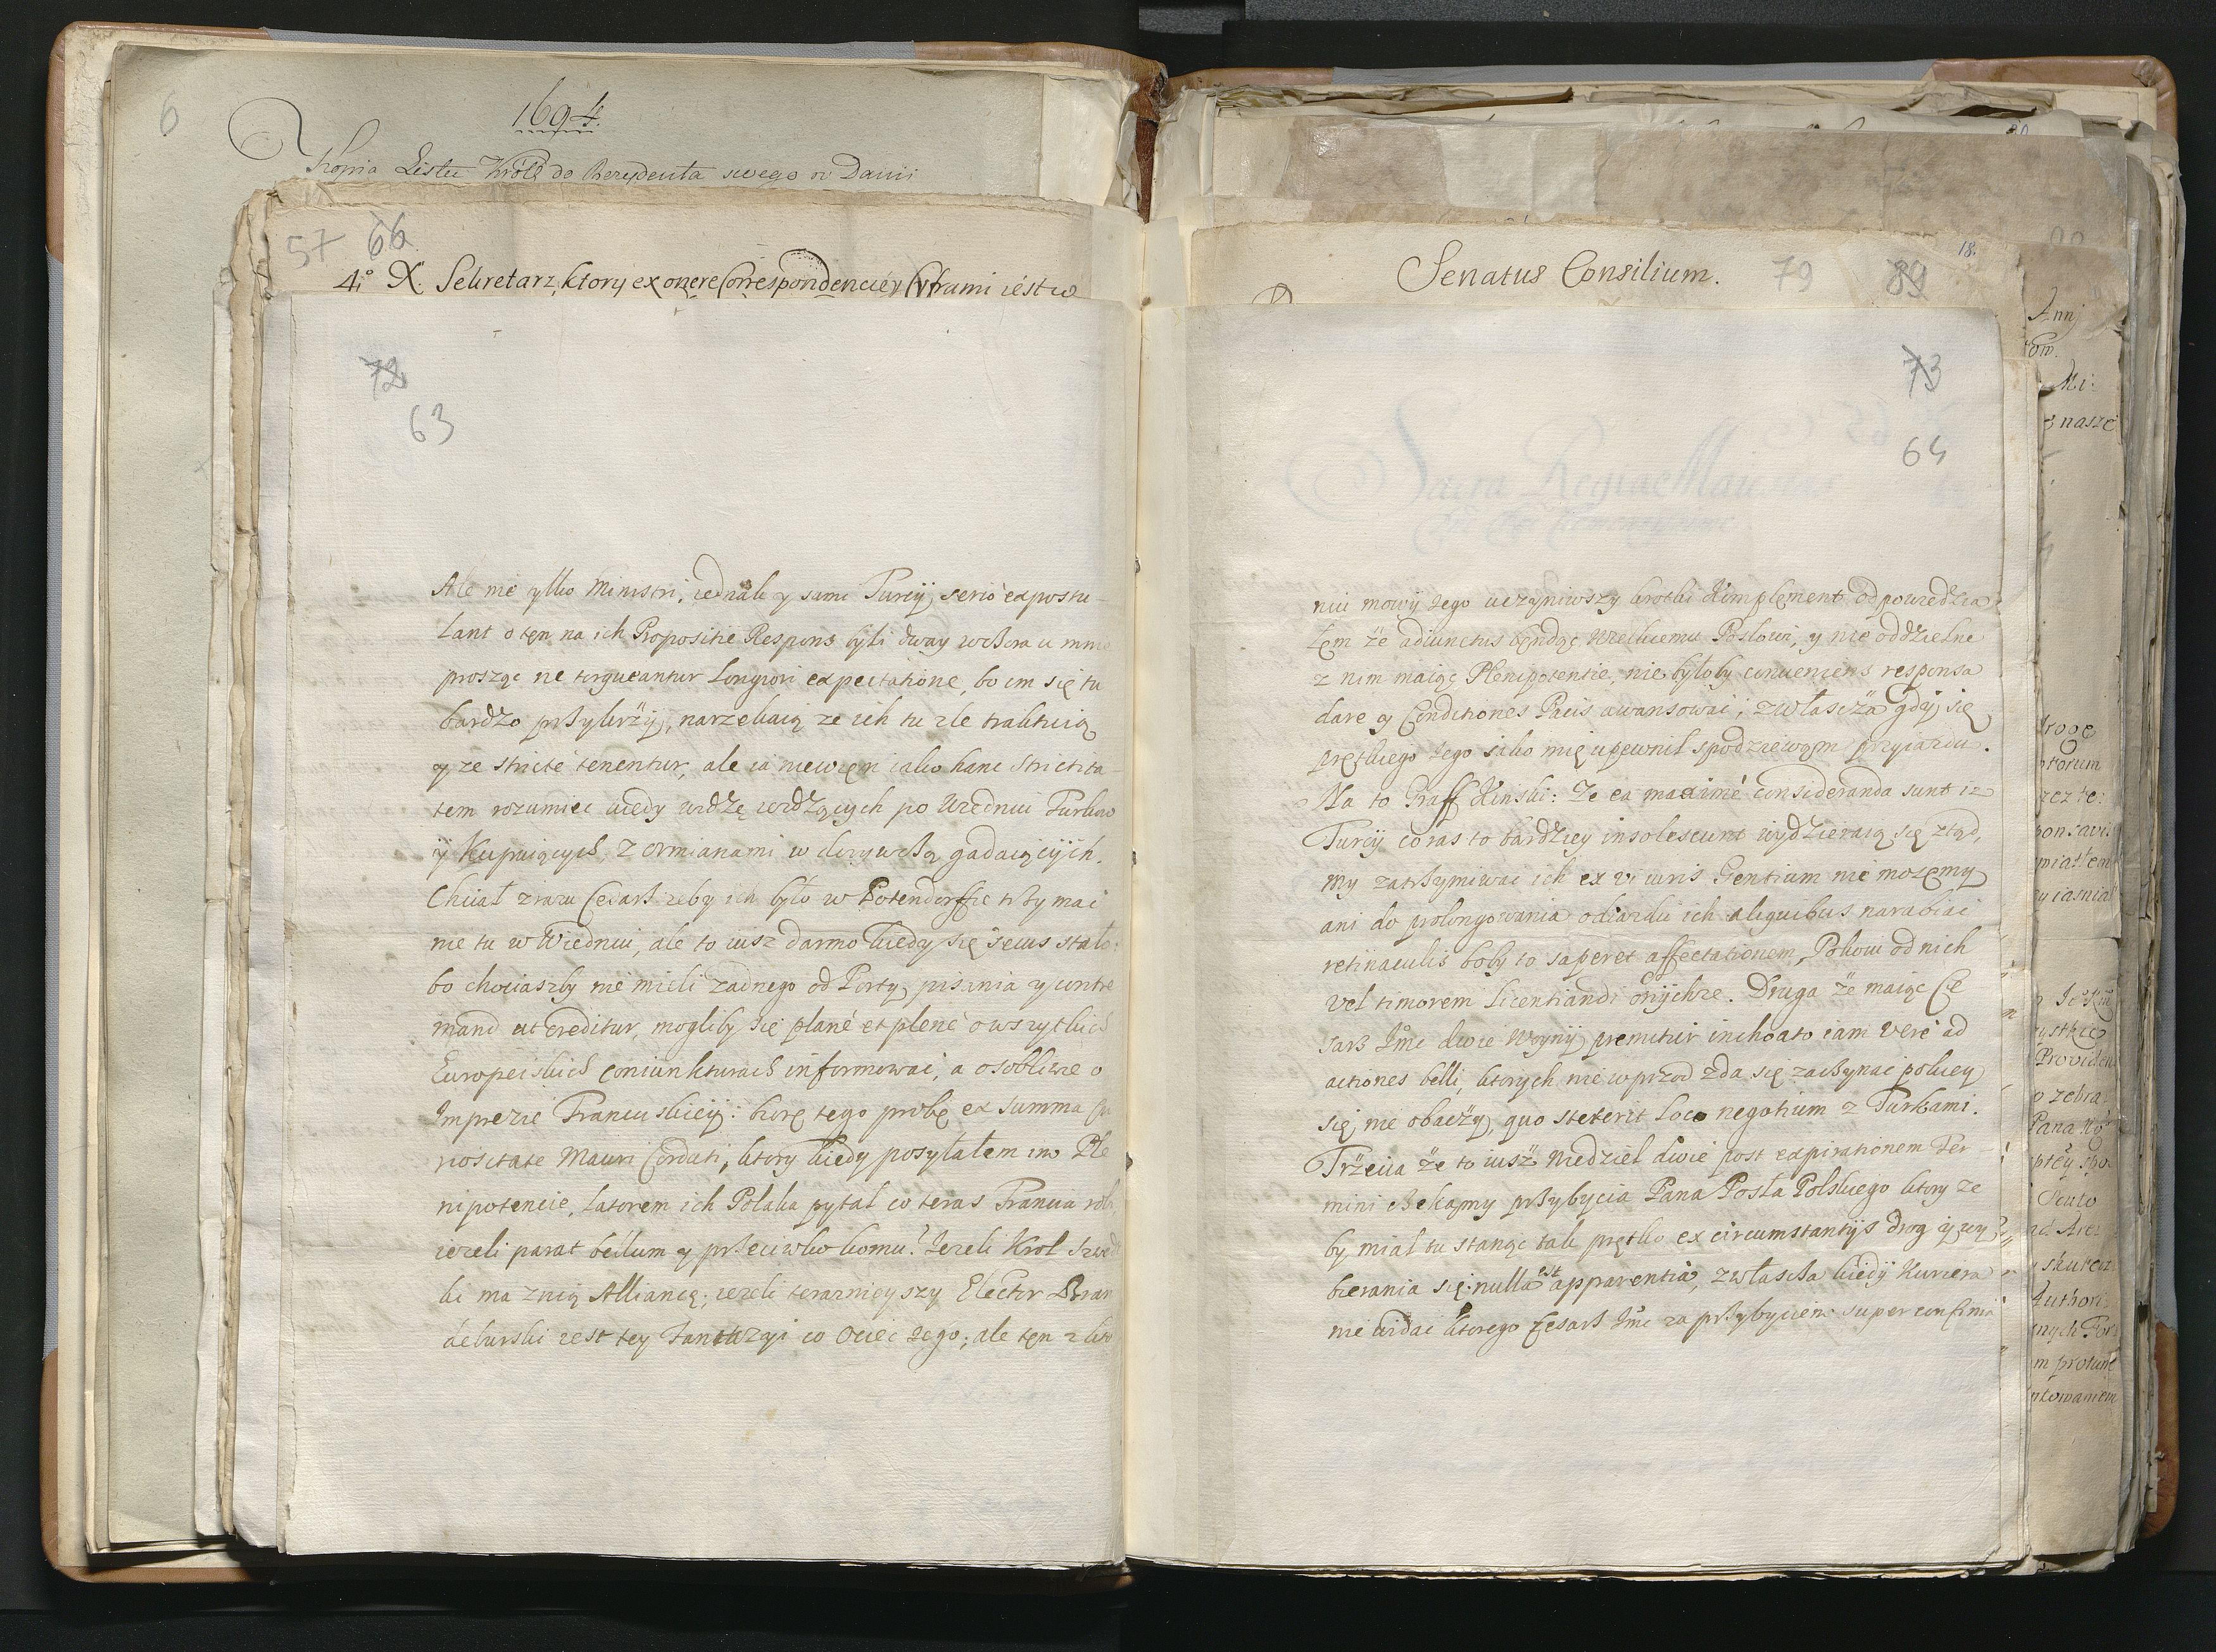 6
1694.
Kopia Listu Króla do Rezydenta swego w Danii
57 66
4o X. Sekretarz, ktory ex onere Correspondenciey Cyframi iest w
72
63
Ale nie tylko Ministri, iednak y sami Turcy, serio expostu-
lant o ten na ich Propositie Respons byli dway wczora u mnie
prosząc ne torqueantur longiori expectatione, bo im się tu
bardzo przykrzy, narzekaią ze ich tu zle traktuią
y ze stricte tenentur, ale ia niewiem iako hanc strictita-
tem rozumiec kiedy widzę iezdzących po Wiedniu Turkow
y Kupuiących, z Ormianami w
gadaiących.
Chciał zrazu Cesarz zeby ich było w Potendorffie trzymac
nie tu w Wiedniu, ale to iusz darmo kiedy się secus stało:
bo chociaszby nie mieli zadnego od Porty pisania y
mand ut creditur, mogliby się plané et plené o wszytkich
Europeiskich coniunkturach informowac, a osobliwie o
Imprezie Francuskiey: biorę tego probę ex summa Cu
riositate Mauri Cordati, ktory kiedy posyłałem mu Ple
nipotencie, latorem ich Polaka pytał co teras Francia robi,
iezeli parat bellum y przeciwko komu? Iezeli Krol Szwedz
ki ma znią Alliancą; iezeli teraznieyszy Elector Bran
deburski iest tey Fantazyi co Ociec Iego; ale ten z kto
Senatus Consilium. 79 89 18.
73
64
niu mowy Iego uczyniwszy krotki Komplement odpowiedzia
łem że adiunctus będąc Wielkiemu Posłowi, y nie oddzielne
z nim maiąc Plenipotentie, nie byłoby conueniens responsa
dare y Conditiones Pacis awansowac, zwłascza gdy się
prętkiego Iego iako mię upewnił spodziewam przyiazdu.
Na to Graff Kinski: Ze ea maximé consideranda sunt iz
Turcy coras to bardziey insolescunt wydzieraią się ztąd,
my zatrzymiwac ich ex vi iuris Gentium nie mozemy
ani do prolongowania odiazdu ich aliquibus narabiac
retinaculis boby to saperet affectationem, Pokoiu od nich
vel timorem licentiandi onychze. Druga że maiąc Ce
sarz Imc dwie Woyny premitur inchoato iam vere ad
actiones belli, ktorych nie wprzod zda się zaczynac pokiey
się nie obaczy, quo steterit loco negotium z Turkami.
Trzecia że to iusz Niedziel dwie post expirationem Ter-
mini czekamy przybycia Pana Posła Polskiego ktory ze
by miał tu stanąc tak prętko ex circumstantijs drog y wy
bierania się: nulla est apparentia, zwłascza kiedy Kuriera
nie widac ktorego Cesarz Imc za przybyciem super confinia
Annj
Mi:
nasze
drogę